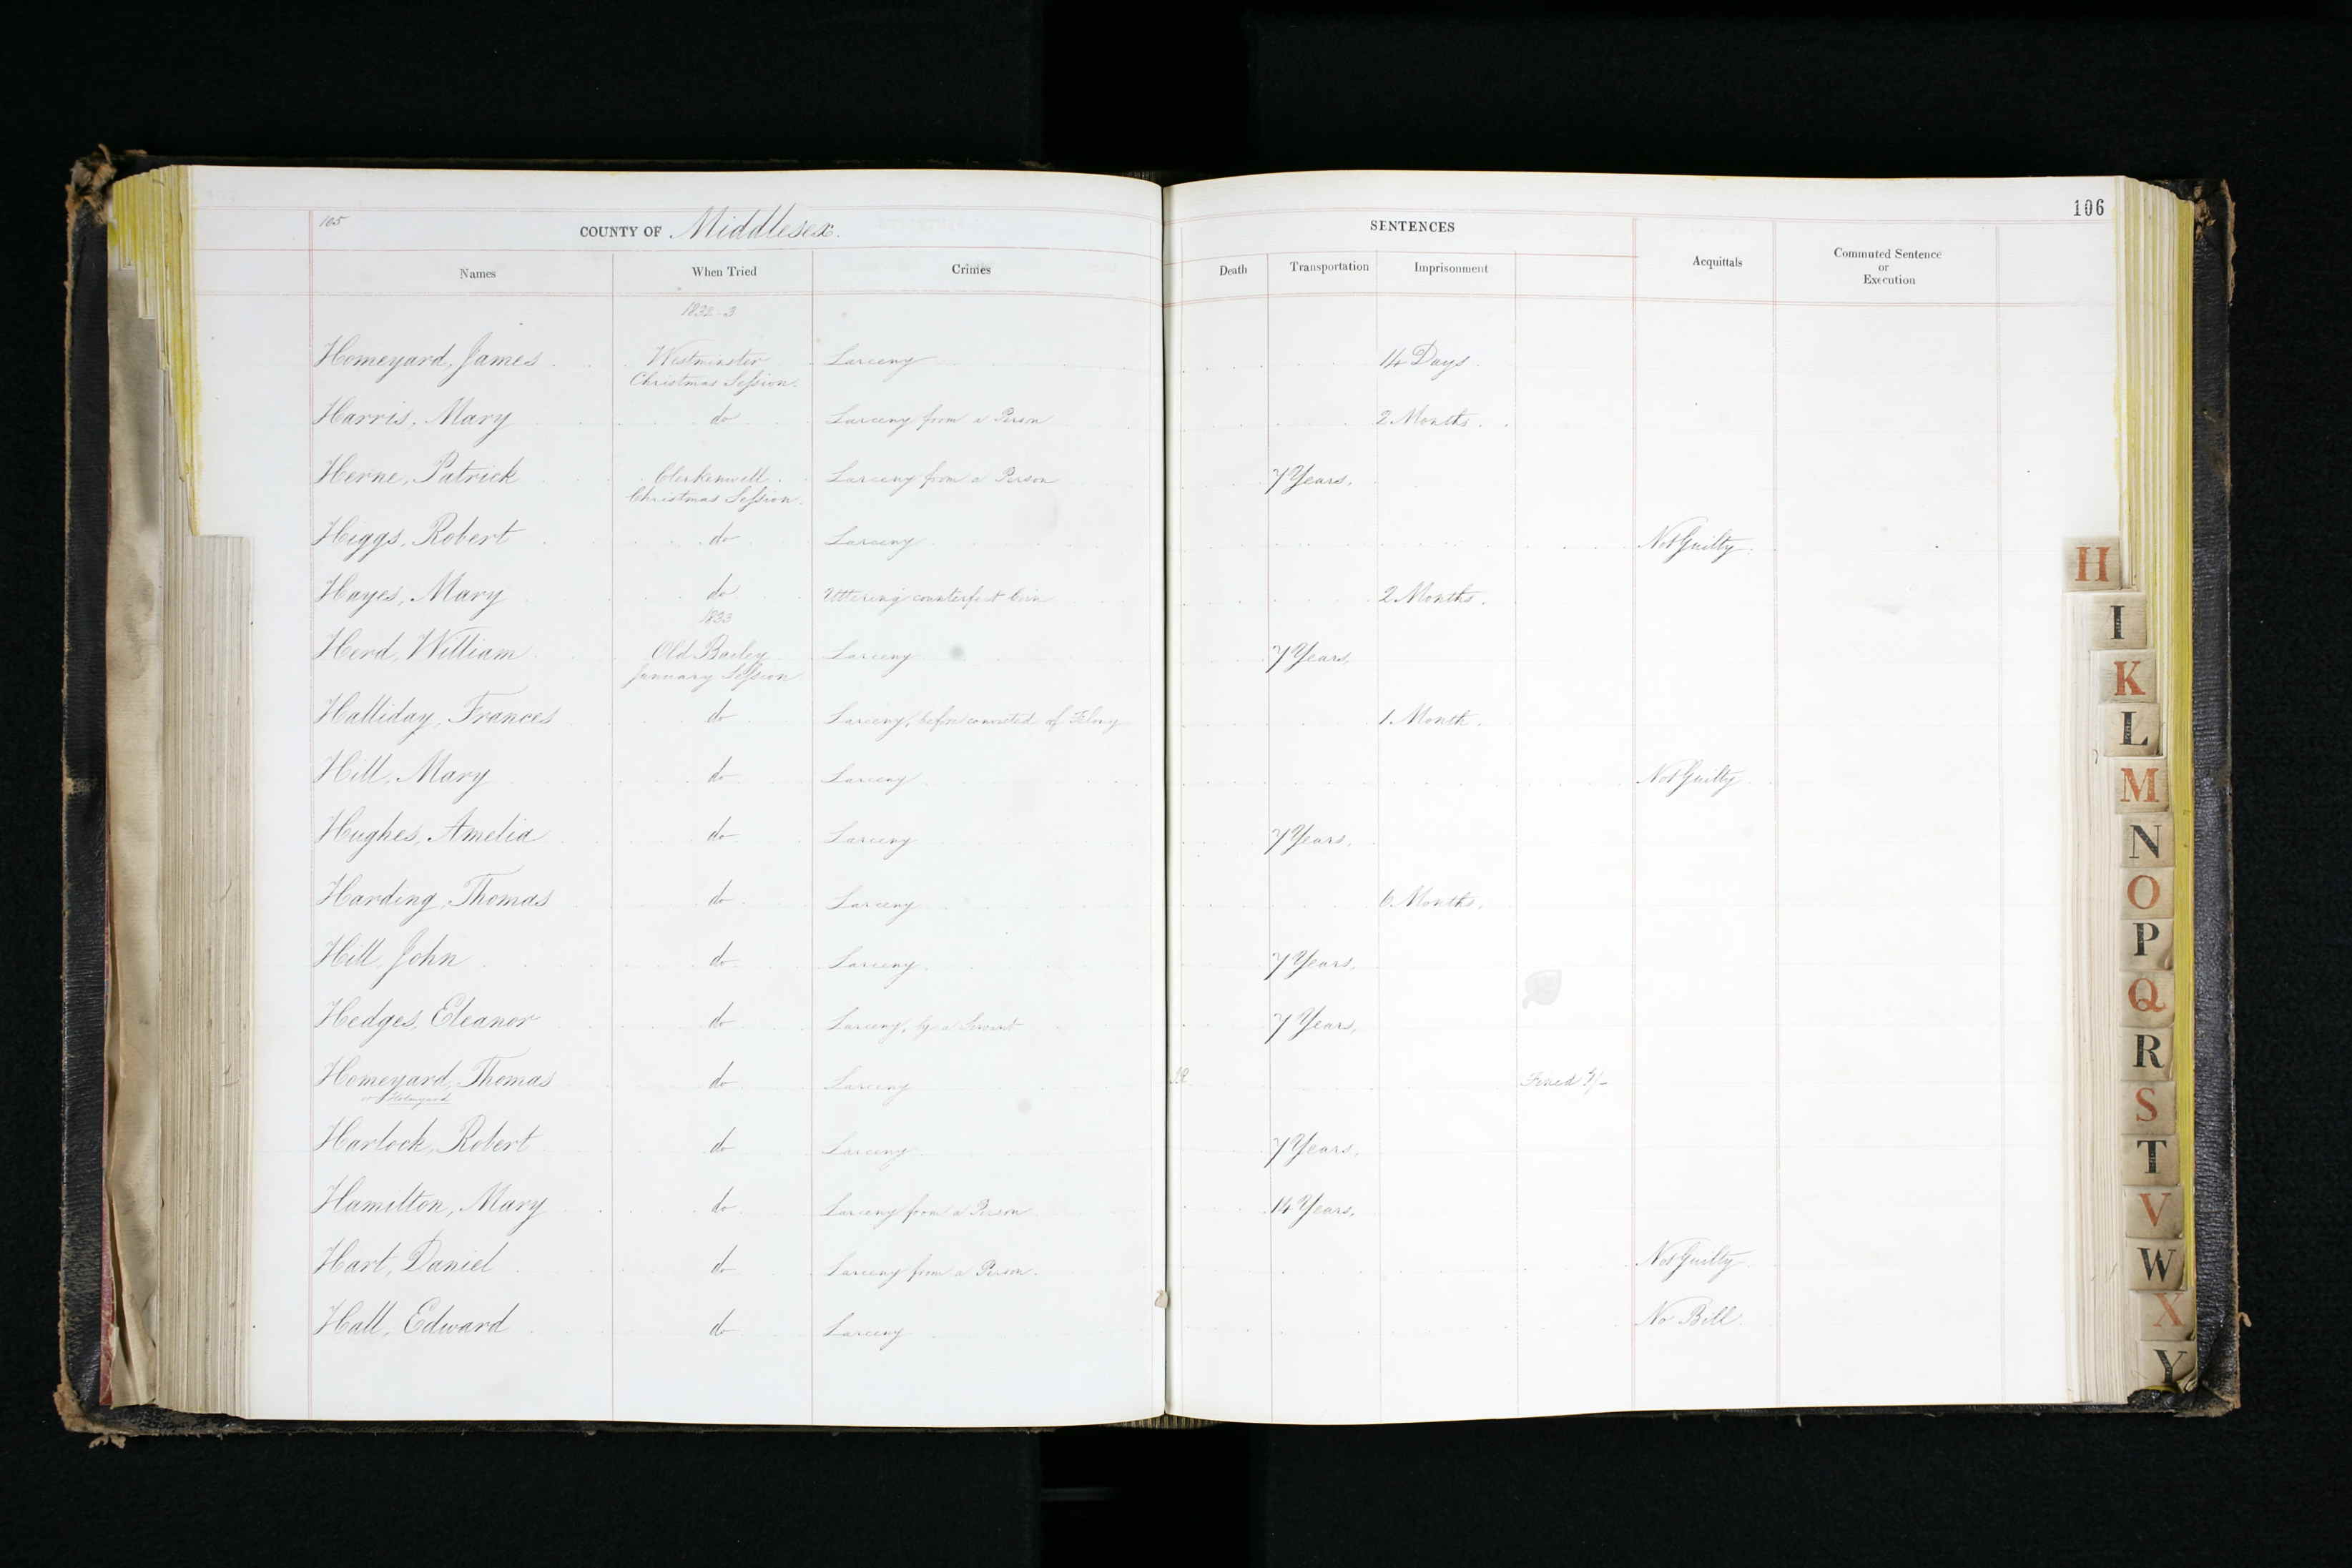 105
COUNTY OF Middlesex.
Names When Tried Crimes
106
SENTENCES
Death Transportation Imprisonment Acquittals Commuted Sentence or Execution
1832-3
Homeyard, James Westminster Larceny 14 Days.
Christmas Session.
Harris, Mary do Larceny from a Person 2 Months.
Herne, Patrick Clerkenwell Larceny from a Person 7 Years.
Christmas Session.
Higgs, Robert do Larceny Not Guilty.
Hayes, Mary do Uttering counterfeit Coin 2 Months.
1833
Herd, William Old Bailey Larceny 7 Years.
January Session
Halliday, Frances do Larceny, before convicted of Felony 1 Month.
Hill, Mary do Larceny Not Guilty.
Hughes, Amelia do Larceny 7 Years.
Harding, Thomas do Larceny 6 Months.
Hill, John do Larceny 7 Years.
Hedges, Eleanor do Larceny, by a Servant 7 Years.
Homeyard, Thomas do Larceny Fined 1/-
or Holmyard
Harlock, Robert do Larceny 7 Years.
Hamilton, Mary do Larceny from a Person 14 Years.
Hart, Daniel do Larceny from a Person. Not Guilty.
Hall, Edward do Larceny No Bill.
H
I
K
L
M
N
O
P
Q
R
S
T
V
W
X
Y